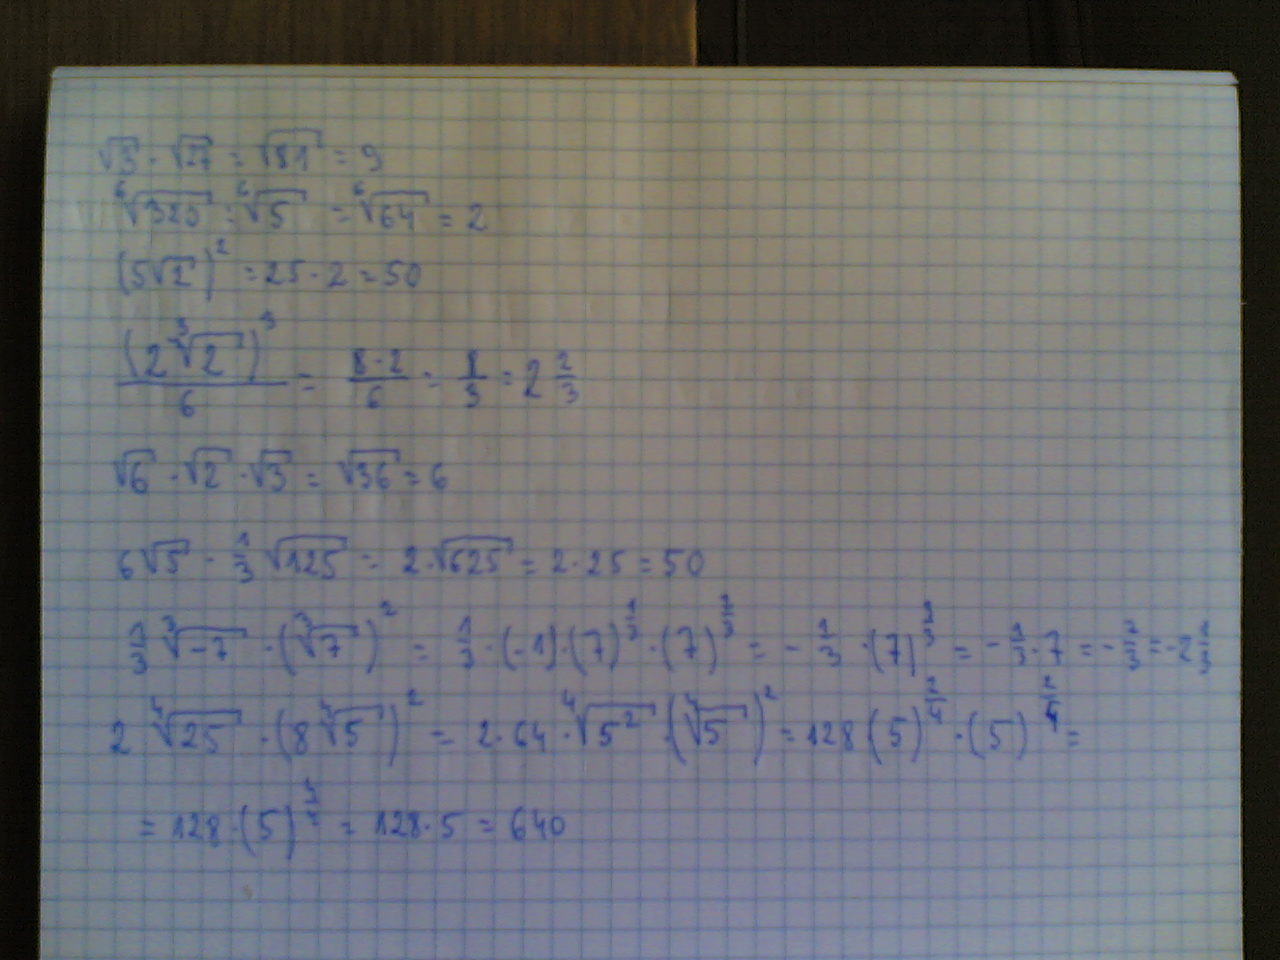 √3 · √27 = √81 = 9
⁶√320 : ⁶√5 = ⁶√64 = 2
(5√2)² = 25 · 2 = 50
(2∛2)³/6 = 8·2/6 = 8/3 = 2 2/3
√6 · √2 · √3 = √36 = 6
6√5 · 1/3 √125 = 2·√625 = 2·25 = 50
1/3 ∛-7 · (∛7)² = 1/3 · (-1)·(7)^1/3 · (7)^2/3 = - 1/3 · (7)^3/3 = - 1/3 · 7 = - 7/3 = -2 1/3
2 ⁴√25 · (8 ⁴√5)² = 2·64 · ⁴√5² · (⁴√5)² = 128 (5)^2/4 · (5)^2/4 =
= 128·(5)^4/4 = 128·5 = 640